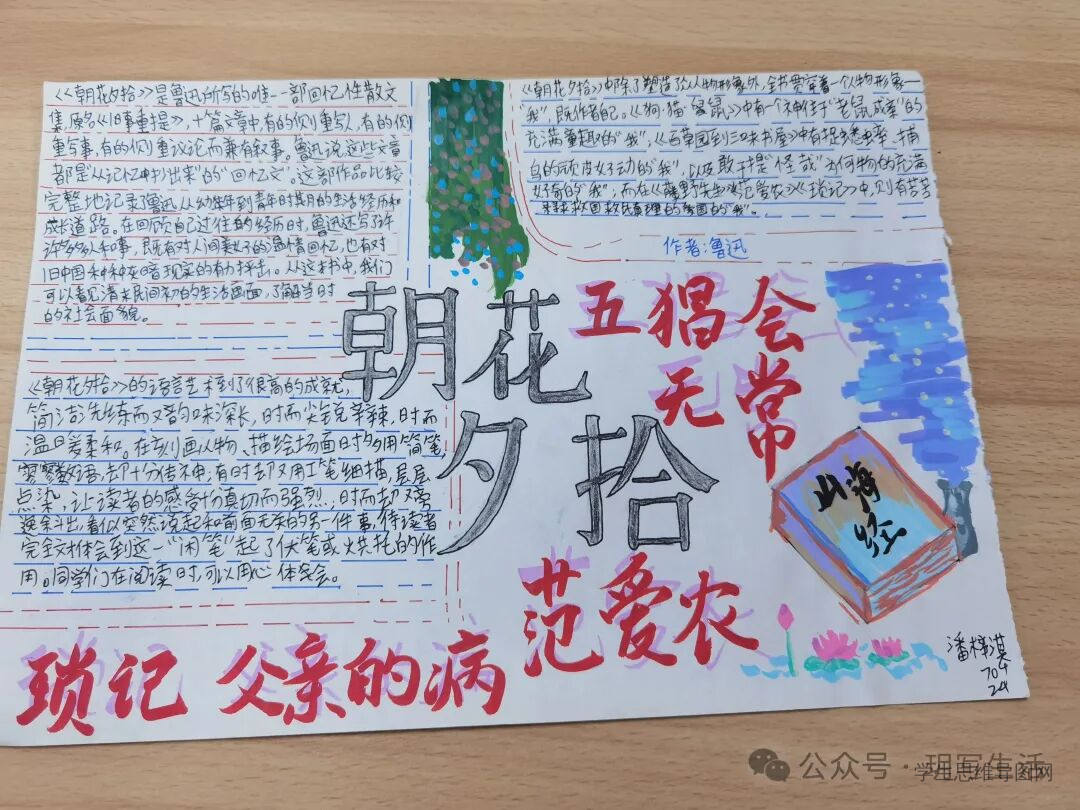 《朝花夕拾》是鲁迅所写的唯一一部回忆性散文
集,原名《旧事重提》,十篇文章中,有的侧重写人,有的侧
重写事,有的侧重议论而兼有叙事。鲁迅说这些文章
都是“从记忆中抄出来”的“回忆文”。这部作品比较
完整地记录鲁迅从幼年到青年时其月的生活经历和
成长道路。在回顾自己过往的经历时,鲁迅还写了许
许多多人和事,既有对人间美好的温情回忆,也有对
旧中国种种灰暗现实的有力抨击。从这本书中,我们
可以看见清末民间初的生活画面,了解当时
的社会面貌。
《朝花夕拾》的语言艺术到了很高的成就,
简洁洗练而又韵味深长,时而尖锐辛辣,时而
温日爱柔和。在刻画人物、描绘场面时多用简笔,
寥寥数语,却十分传神,有时却又用工笔细描,层层
点染,让读者的感受十分真切而强烈;时而却又旁
逸斜出,看似突然说起和前面无亲的另一件事,待读者
完全文才体会到这一“闲笔”起了伏笔或烘托的作
用。同学们在阅读时,可以用心体会。
《朝花夕拾》中除了塑造了众人物形象外,全书贯穿着一个人物形象
“我”,既作者自己。《狗·猫·鼠》中有一个神往于“老鼠成亲”的
充满童趣的“我”,《百草园到三味书屋》中有捉蟋蟀、捕
鸟的顽皮好动的“我”,以及敢于提“怪哉”为何物的充满
好奇的“我”;而在《藤野先生》《范爱农》《琐记》中,则有苦苦
寻求救国救民真理的爱国的“我”。
作者:鲁迅
朝花
夕拾
五猖会
无常
山海
经
范爱农
琐记 父亲的病
潘梓淇
704
24
公众号·玥写生活
学生思维导图网